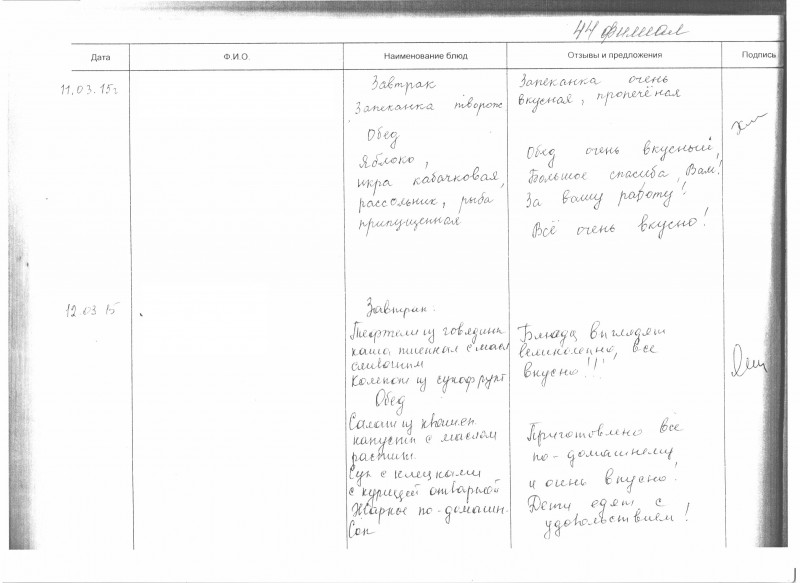 44 филиал
Дата Ф.И.О. Наименование блюд Отзывы и предложения Подпись
11.03.15г Завтрак Запеканка очень
Запеканка творож вкусная, пропечёная
Обед
Яблоко, Обед очень вкусный,
икра кабачковая, Большое спасиба Вам!
рассольник, рыба За вашу работу!
припущенная Всё очень вкусно!
12.03 15 Завтрак.
Тефтели из говядины Блюда выглядят
каша пшенная с масл великолепно, все
сливочным вкусно!!!
Компот из сухофрукт
Обед
Салат из квашен Приготовлено все
капусты с маслом по-домашнему
растит. и очень вкусно!
Суп с клецками Дети едят с
с курицей отварной удовольствием!
Жаркое по-домашн-
Сок